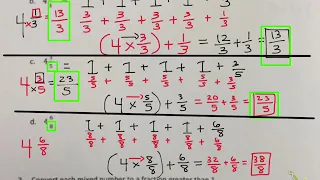 4 1/3 = 13/3
x3
3/3 + 3/3 + 3/3 + 3/3 + 1/3
(4 x 3/3) + 1/3 = 12/3 + 1/3 = 13/3
c. 4 = 1 + 1 + 1 + 1 + 3/5
4 3/5 = 23/5
x5
5/5 5/5 5/5 5/5
(4 → 5/5) + 3/5 = 20/5 + 3/5 = 23/5
d. 4 6/8
1 + 1 + 1 + 1 + 6/8
4 6/8
8/8 8/8 8/8 8/8
(4 x 8/8) + 6/8 = 32/8 + 6/8 = 38/8
Convert each mixed number to a fraction greater than 1